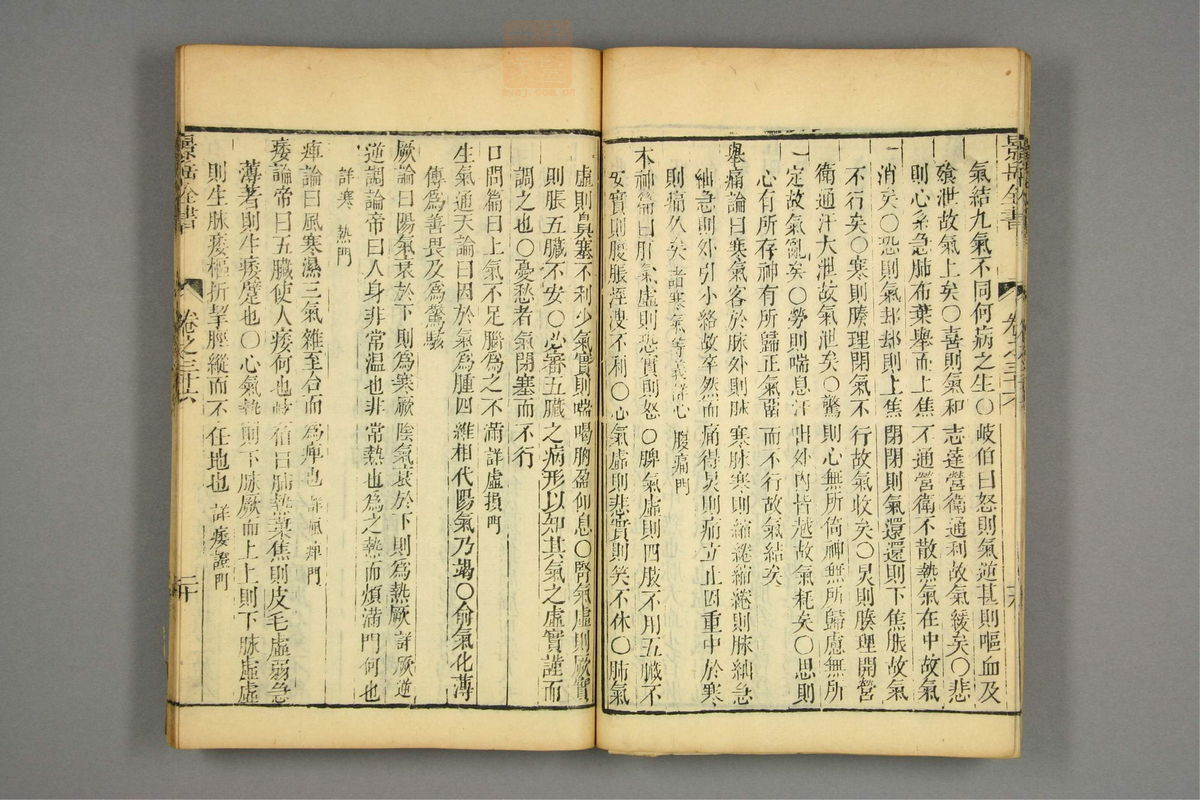 景岳全書 卷之三十六
氣結九氣不同何病之生〇岐伯曰怒則氣逆甚則嘔血及
飱泄故氣上矣〇喜則氣和志達營衛通利故氣緩矣〇悲
則心系急肺布葉舉而上焦不通營衛不散熱氣在中故氣
消矣〇恐則氣却却則上焦閉閉則氣還還則下焦脹故氣
不行矣〇寒則腠理閉氣不行故氣收矣〇炅則腠理開營
衛通汗大泄故氣泄矣〇驚則心無所倚神無所歸慮無所
定故氣亂矣〇勞則喘息汗出外內皆越故氣耗矣〇思則
心有所存神有所歸正氣留而不行故氣結矣
舉痛論曰寒氣客於脉外則脉寒脉寒則縮綣縮綣則脉絀急
絀急則外引小絡故卒然而痛得炅則痛立止因重中於寒
則痛久矣 諸寒氣等義詳心腹痛門
本神篇曰肝氣虛則恐實則怒〇脾氣虛則四肢不用五臟不
安實則腹脹經溲不利〇心氣虛則悲實則笑不休〇肺氣
虛則鼻塞不利少氣實則喘喝胸盈仰息〇腎氣虛則厥實
則脹五臟不安〇必審五臟之病形以知其氣之虛實謹而
調之也〇憂愁者氣閉塞而不行
口問篇曰上氣不足腦為之不滿 詳虛損門
生氣通天論曰因於氣為腫四維相代陽氣乃竭〇俞氣化薄
傳為善畏及為驚駭
厥論曰陽氣衰於下則為寒厥陰氣衰於下則為熱厥 詳厥逆
逆調論帝曰人身非常温也非常熱也為之熱而煩滿門何也
詳寒熱門
痺論曰風寒濕三氣雜至合而為痺也 詳風痺門
痿論帝曰五臟使人痿何也岐伯曰肺熱葉焦則皮毛虛弱急
薄著則生痿躄也〇心氣熱則下脉厥而上上則下脉虛虛
則生脉痿樞折挈脛縱而不任地也 詳痿證門
景岳全書 卷之三十六 二十